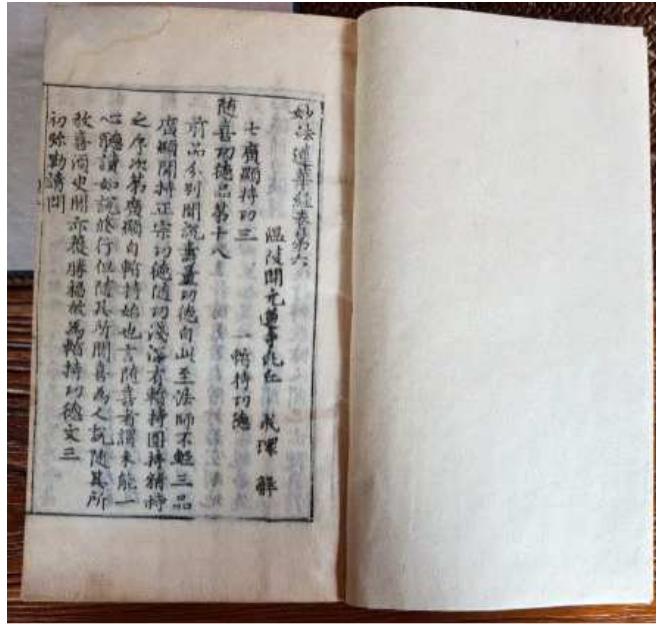 妙法連華經卷第六
溫陵開元蓮寺比丘 戒環 解
七廣顯持功三 一暫持功德
随喜功德品第十八
前品分別聞說壽量功德自此至法師不輕三品
廣顯聞持正宗功德随功淺深有暫持圓持精持
之序次第廣顯自暫持始也言随喜者謂未能一
心聽讀如說修行但随其所聞喜為人說随其所
教喜須臾聞亦獲勝福故為暫持功德文三
初弥勒請問